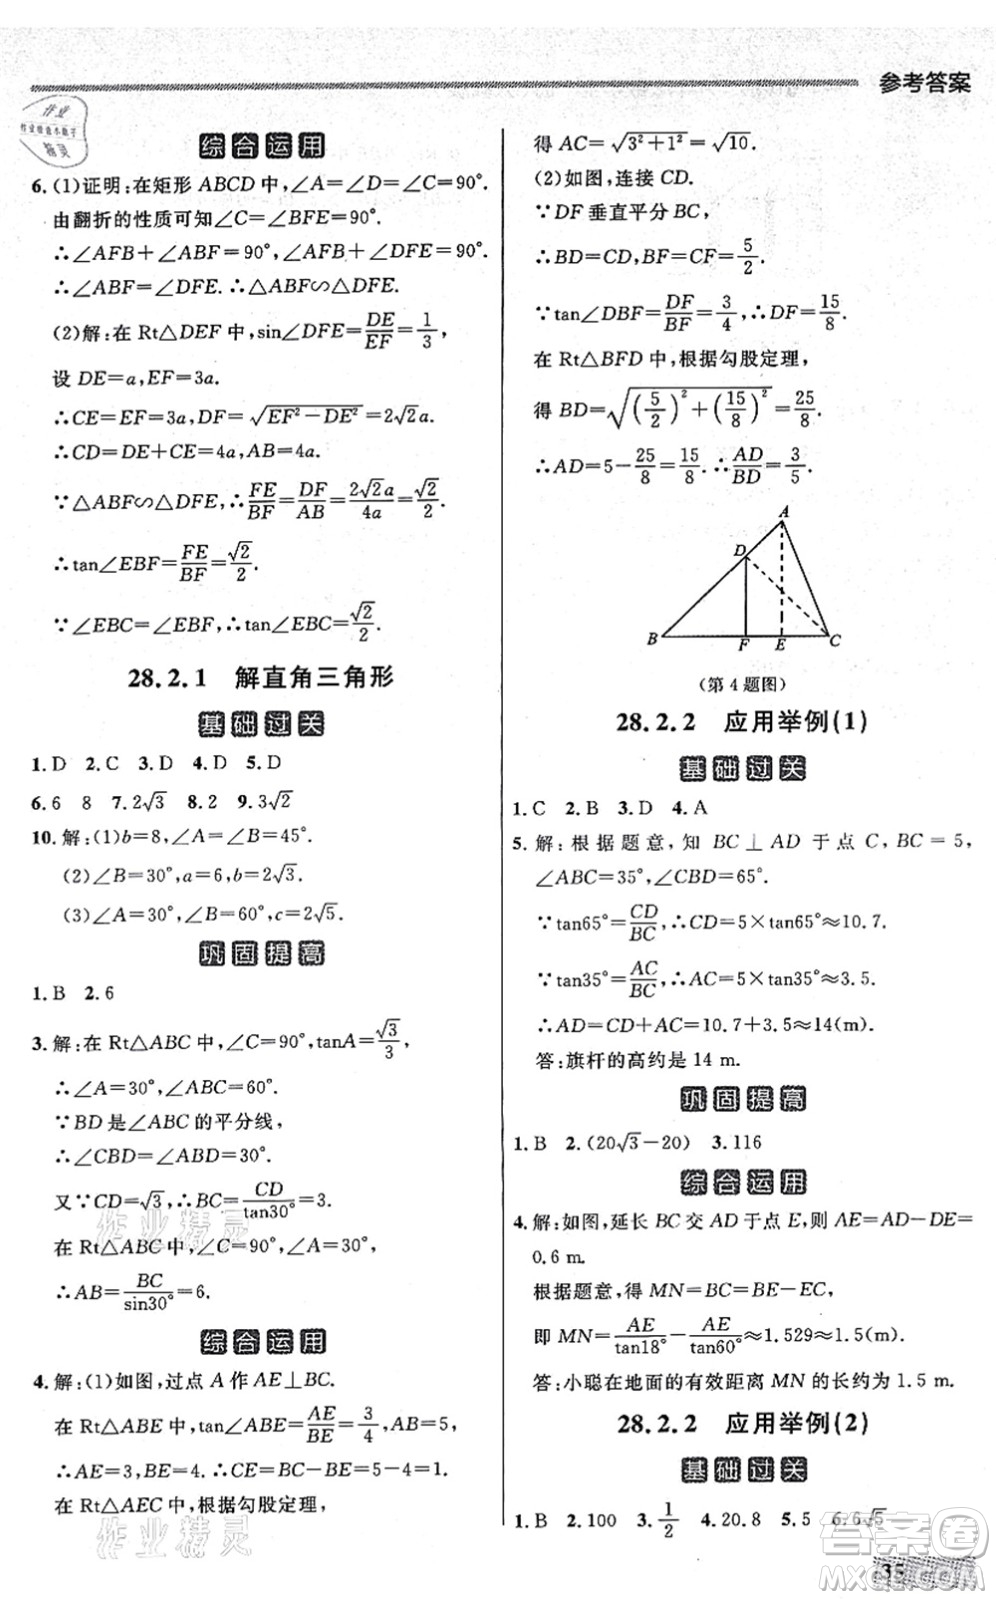 参考答案
作业
作业检查小助手
精灵
综合运用
6.(1)证明:在矩形 ABCD 中,∠A=∠D=∠C=90°.
由翻折的性质可知∠C=∠BFE=90°.
∴∠AFB+∠ABF=90°,∠AFB+∠DFE=90°.
∴∠ABF=∠DFE.∴△ABF∽△DFE.
(2)解:在 Rt△DEF 中,sin∠DFE=DE/EF=1/3,
设 DE=a,EF=3a.
∴CE=EF=3a,DF=√(EF²-DE²)=2√2a.
∴CD=DE+CE=4a,AB=4a.
∵△ABF∽△DFE,∴FE/BF=DF/AB=2√2a/4a=√2/2.
∴tan∠EBF=FE/BF=√2/2.
∵∠EBC=∠EBF,∴tan∠EBC=√2/2.
28.2.1 解直角三角形
基础过关
1.D 2.C 3.D 4.D 5.D
6.6 8 7.2√3 8.2 9.3√2
10.解:(1)b=8,∠A=∠B=45°.
(2)∠B=30°,a=6,b=2√3.
(3)∠A=30°,∠B=60°,c=2√5.
巩固提高
1.B 2.6
3.解:在 Rt△ABC 中,∠C=90°,tanA=√3/3,
∴∠A=30°,∠ABC=60°.
∵BD 是∠ABC 的平分线,
∴∠CBD=∠ABD=30°.
又∵CD=√3,∴BC=CD/tan30°=3.
在 Rt△ABC 中,∠C=90°,∠A=30°,
∴AB=BC/sin30°=6.
综合运用
4.解:(1)如图,过点 A 作 AE⊥BC.
在 Rt△ABE 中,tan∠ABE=AE/BE=3/4,
∴AE=3,BE=4,∴CE=BC-BE=5-4=1.
在 Rt△AEC 中,根据勾股定理,
得 AC=√(3²+1²)=√10.
(2)如图,连接 CD.
∵DF 垂直平分 BC,
∴BD=CD,BF=CF=5/2.
∵tan∠DBF=DF/BF=3/4,∴DF=15/8.
在 Rt△BFD 中,根据勾股定理,
得 BD=√((5/2)²+(15/8)²)=25/8.
∴AD=5-25/8=15/8.∴AD/BD=3/5.
A
D
B F E C
(第 4 题图)
28.2.2 应用举例(1)
基础过关
1.C 2.B 3.D 4.A
5.解:根据题意,知 BC⊥AD 于点 C,BC=5,
∠ABC=35°,∠CBD=65°.
∵tan65°=CD/BC,∴CD=5×tan65°≈10.7.
∵tan35°=AC/BC,∴AC=5×tan35°≈3.5.
∴AD=CD+AC=10.7+3.5≈14(m).
答:旗杆的高约是 14 m.
巩固提高
1.B 2.(20√3-20) 3.116
综合运用
4.解:如图,延长 BC 交 AD 于点 E,则 AE=AD-DE=
0.6 m.
根据题意,得 MN=BC=BE-EC,
即 MN=AE/tan18°-AE/tan60°≈1.529≈1.5(m).
答:小聪在地面的有效距离 MN 的长约为 1.5 m.
28.2.2 应用举例(2)
基础过关
1.B 2.100 3.1/2 4.20.8 5.5 6.6√5
作业精灵
作业精灵
答案卷
MXQE.COM
35